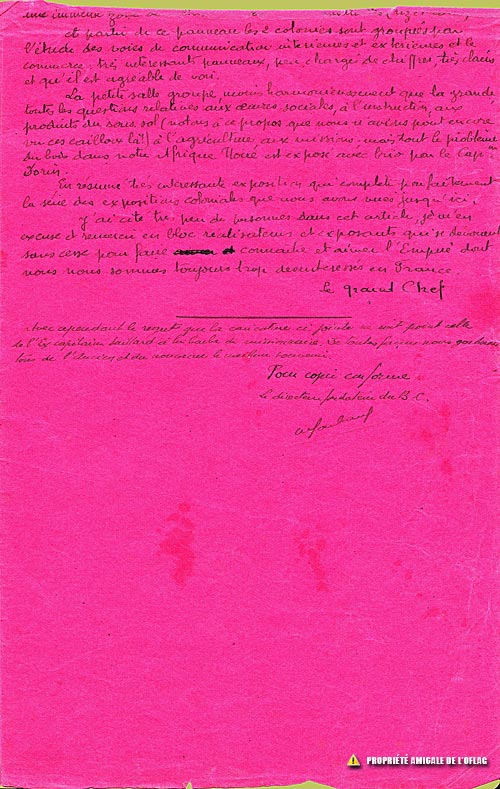 une immense
et partir de ce panneau les 2 colonies sont groupées pour
l'étude des voies de communication intérieures et extérieures et le
commerce: très intéressants panneaux, peu chargés de chiffres, très clairs
et qu'il est agréable de voir.
La petite salle groupe, moins harmonieusement que la grande
toutes les questions relatives aux œuvres sociales, à l'instruction, aux
produits du sous sol (notons à ce propos que nous n'avions point encore
vu ces cailloux là!) à l'agriculture aux missions. mais tout le problème
du bois dans notre Afrique Noire est exposé avec brio par le Capi
Dorin.
En résumé très intéressante exposition qui complète parfaitement
la série des expositions coloniales que nous avons vues jusqu'ici,
J'ai cité très peu de personnes dans cet article, je m'en
excuse et remercie en bloc réalisateurs et exposants qui se dévouent
sans cesse pour faire connaître et aimer l'Empire dont
nous nous sommes toujours trop désintéressés en France.
Le grand Chef
Avec cependant le regret que la caricature ci jointe ne soit point celle
de l'Ex capitaine à la barbe de missionnaire. De toutes façons nous
tous de l'ancien et du nouveau le meilleur souvenir.
Pour copie conforme
Le directeur fondateur du B.C.
PROPRIÉTÉ AMICALE DE L'OFLAG